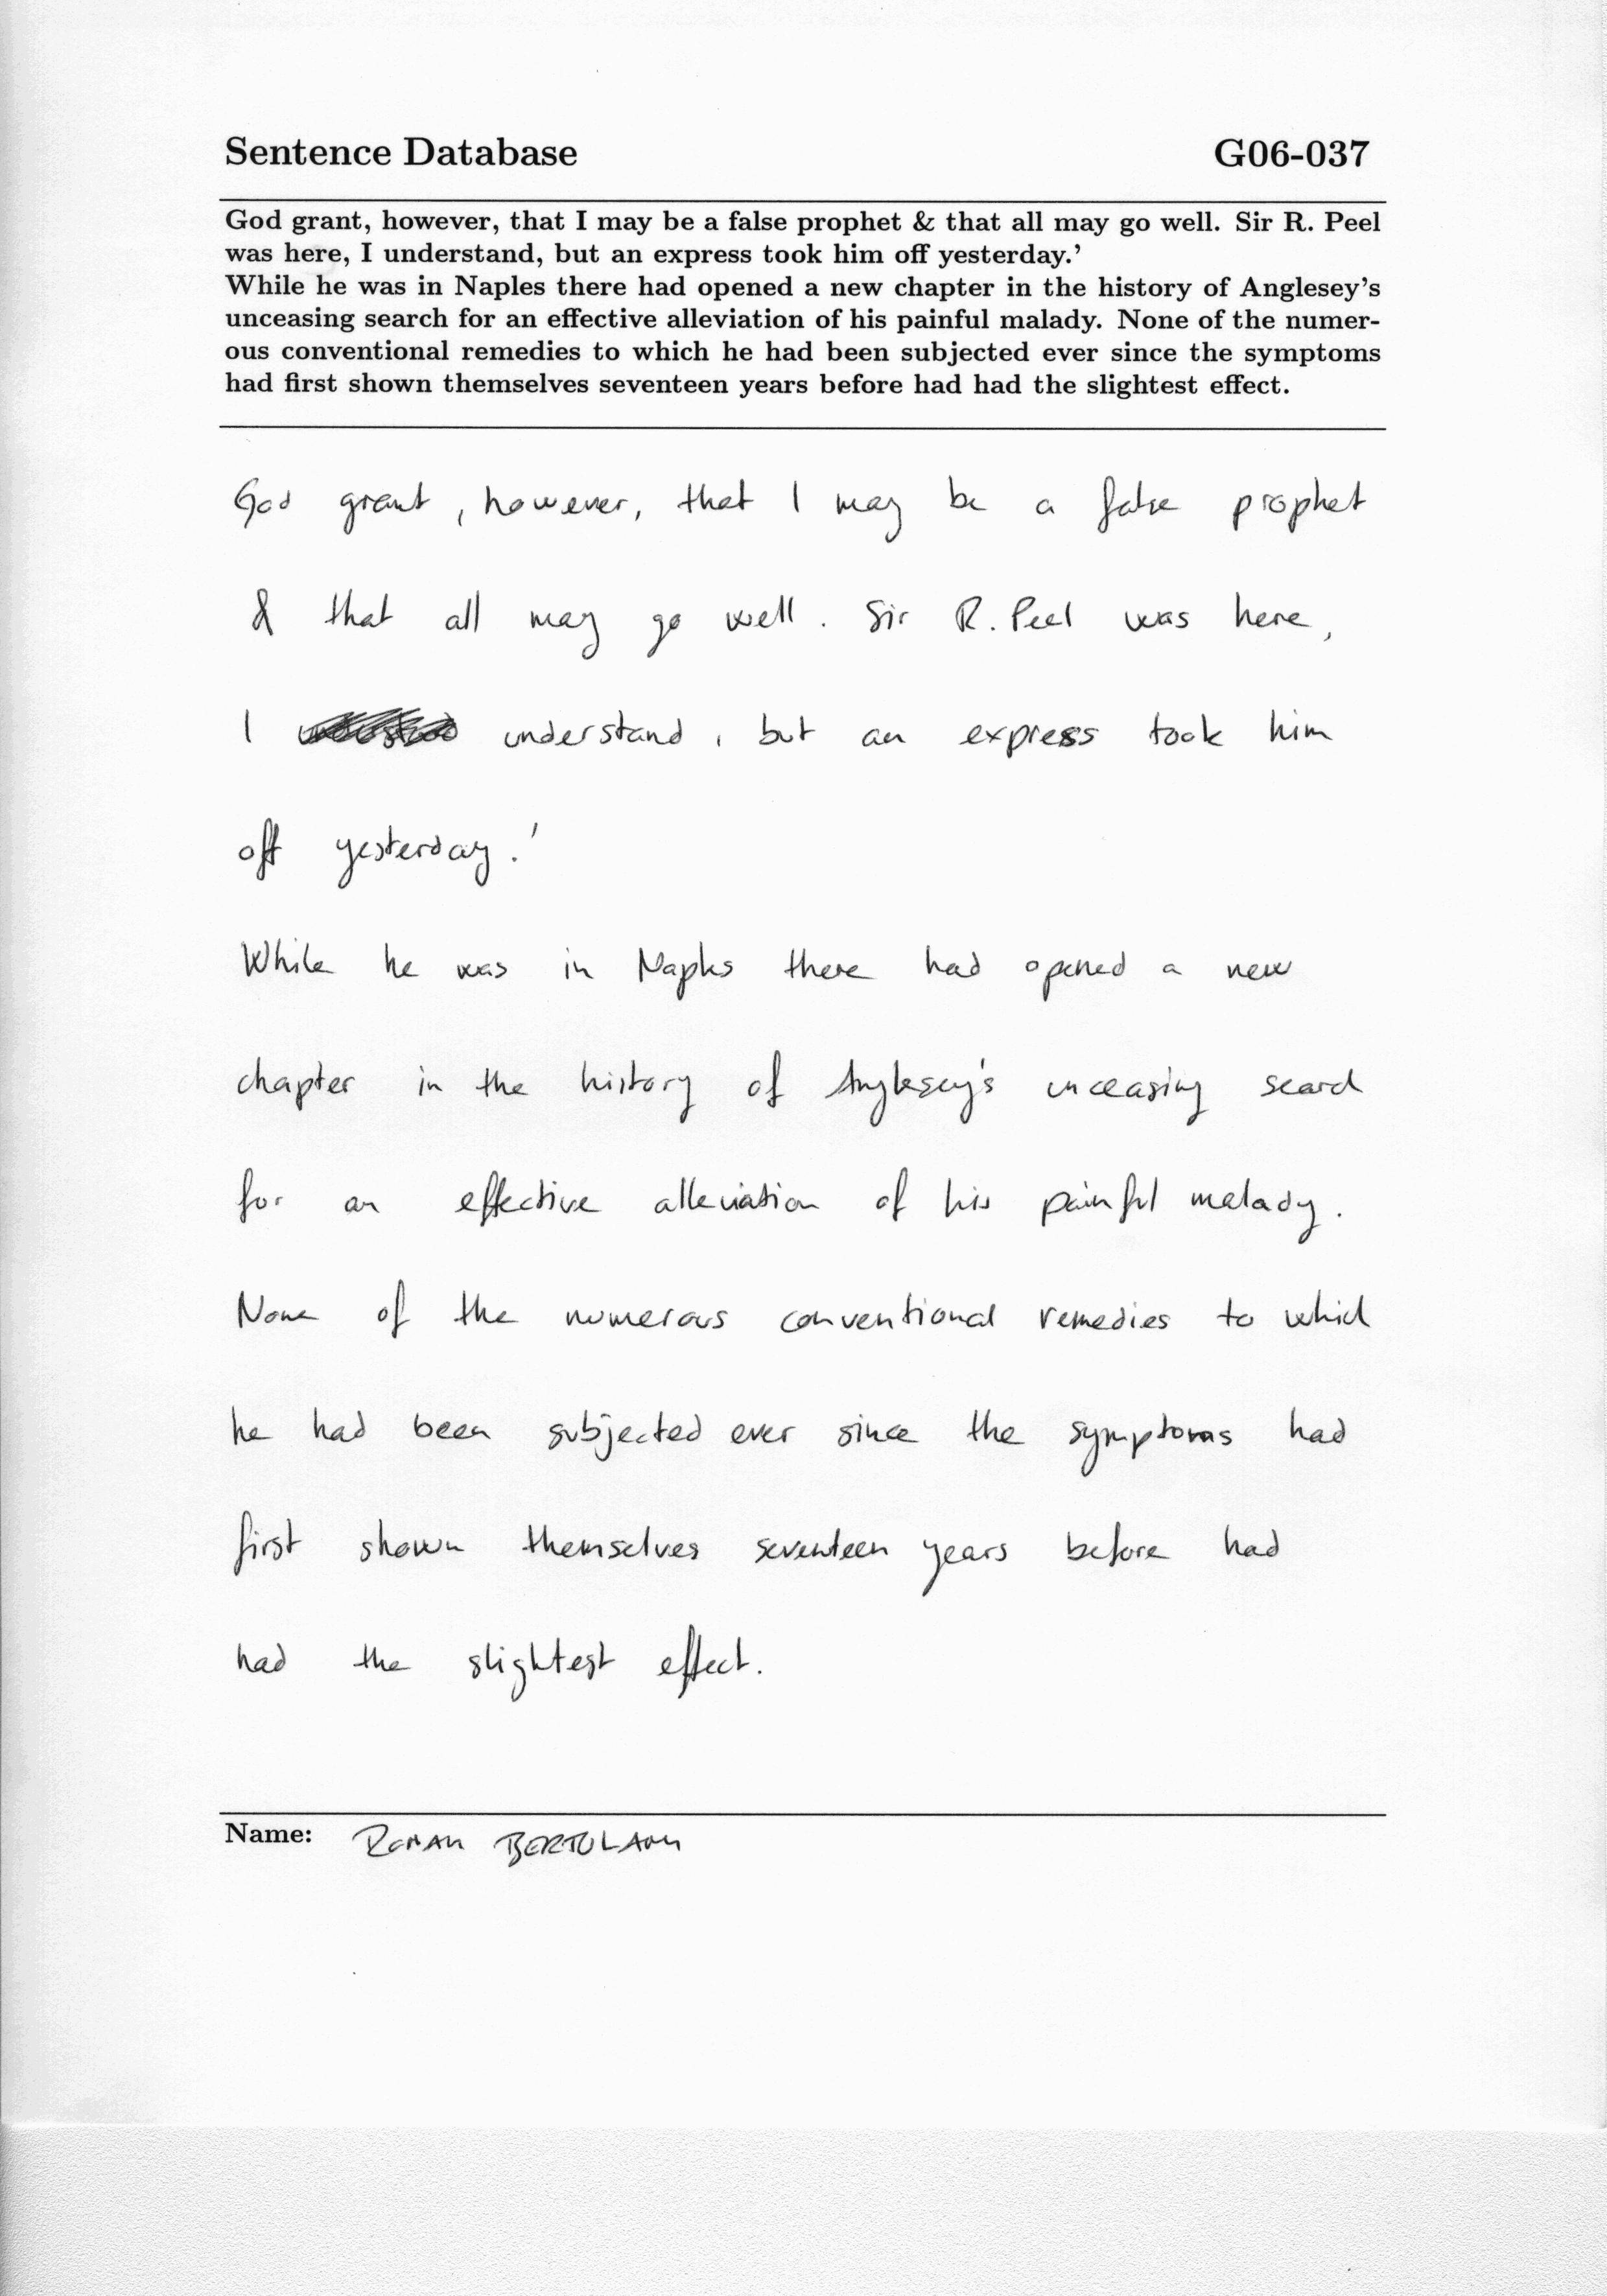 Sentence Database G06-037
God grant, however, that I may be a false prophet & that all may go well. Sir R. Peel
was here, I understand, but an express took him off yesterday.'
While he was in Naples there had opened a new chapter in the history of Anglesey's
unceasing search for an effective alleviation of his painful malady. None of the numer-
ous conventional remedies to which he had been subjected ever since the symptoms
had first shown themselves seventeen years before had had the slightest effect.
God grant, however, that I may be a false prophet
& that all may go well. Sir R. Peel was here,
I understand, but an express took him
off yesterday.'
While he was in Naples there had opened a new
chapter in the history of Anglesey's unceasing search
for an effective alleviation of his painful malady.
None of the numerous conventional remedies to which
he had been subjected ever since the symptoms had
first shown themselves seventeen years before had
had the slightest effect.
Name: ROMAN BERTOLAMI